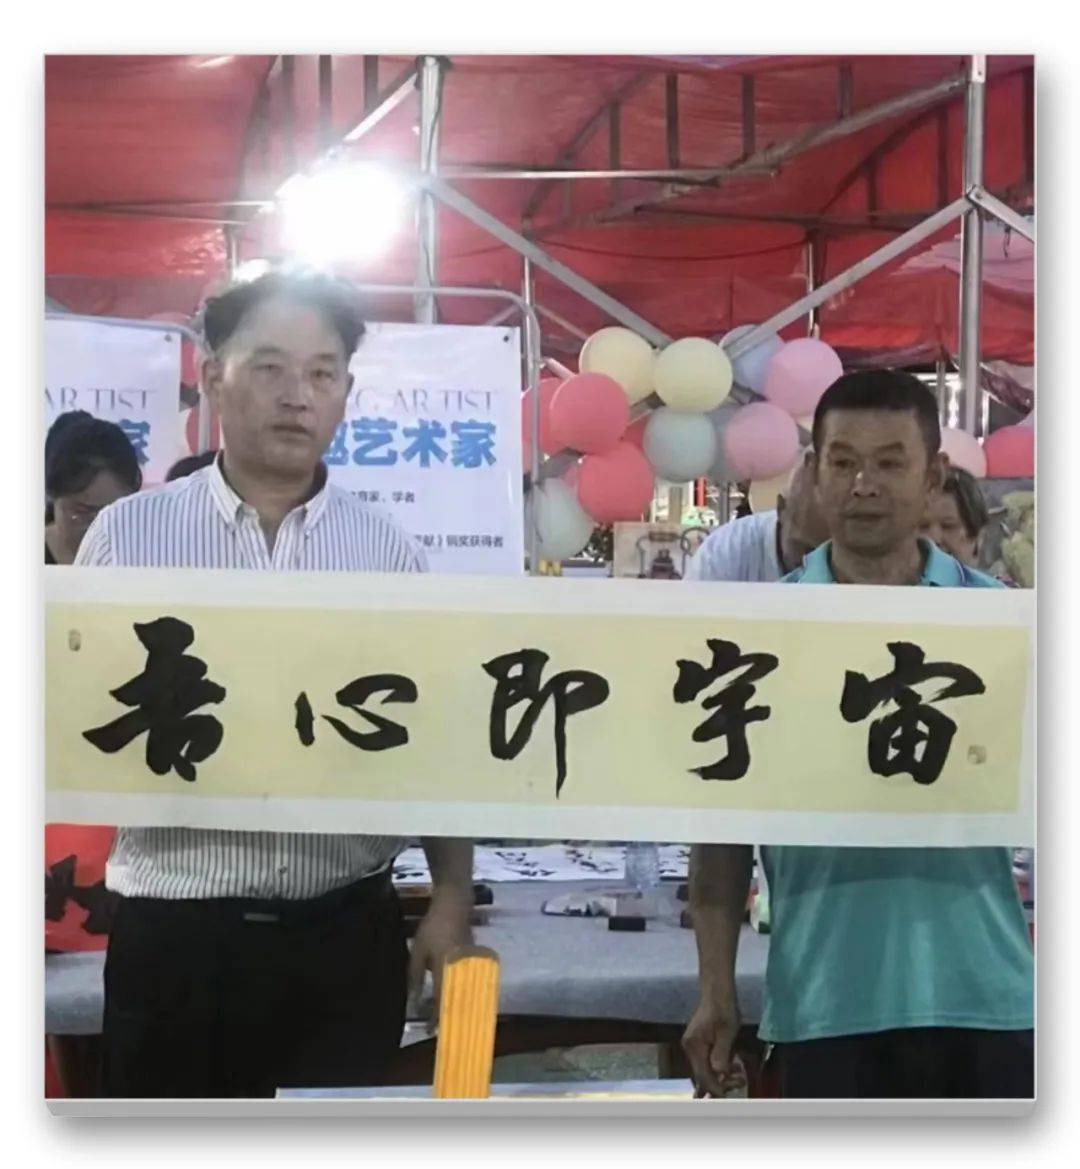 AR TIST
家
G AR TIST
越艺术家
育家、学者
献》铜奖获得者
吾心即宇宙